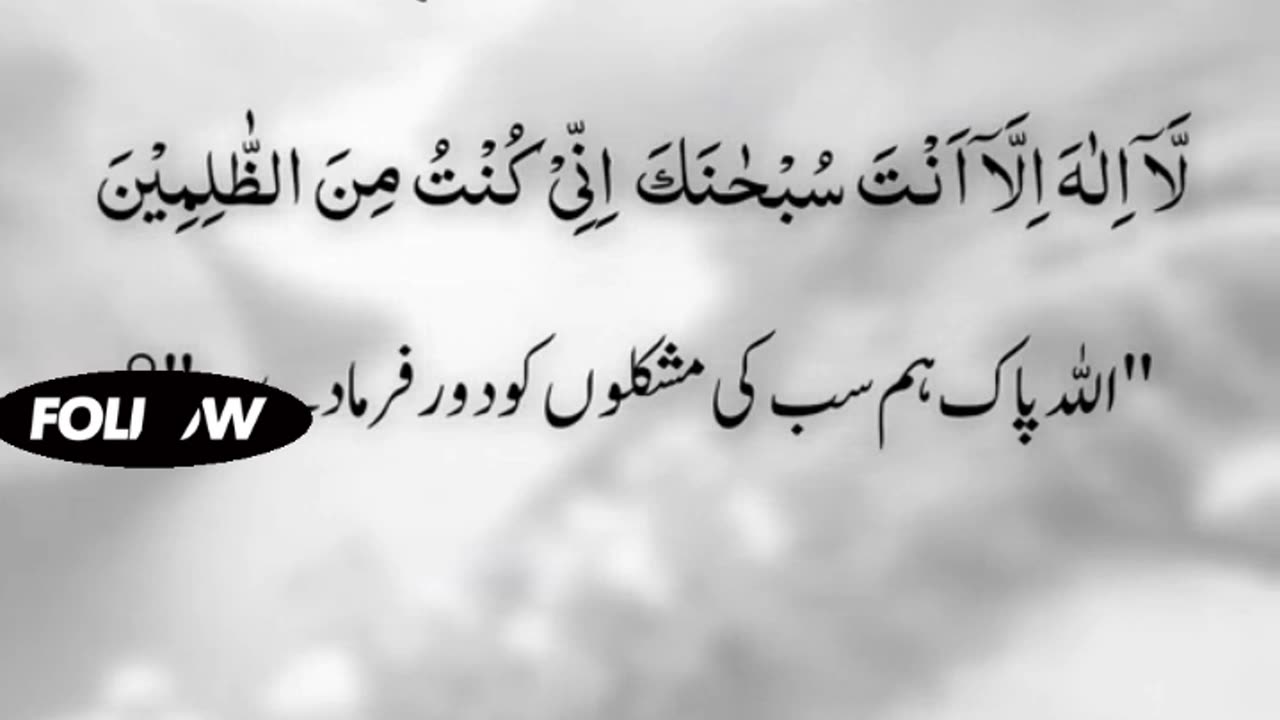 لَّآ اِلٰهَ اِلَّآ اَنْتَ سُبْحٰنَكَ اِنِّيْ كُنْتُ مِنَ الظّٰلِمِيْنَ
"اللہ پاک ہم سب کی مشکلوں کو دور فرما